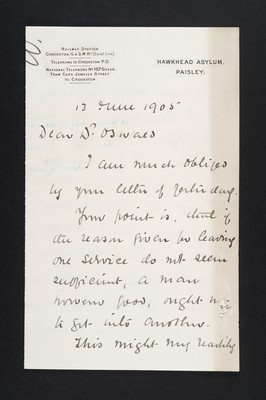 W.
RAILWAY STATION
CROOKSTON, G. & S.W. RY (Canal Line)
TELEGRAMS TO CROOKSTON P.O
NATIONAL TELEPHONE Nº 157 GOVAN.
TRAM CARS JAMAICA STREET
TO CROOKSTON
HAWKHEAD ASYLUM,
PAISLEY.
13 June 1905
Dear Dr. Oswald
I am much obliged
by your letter of yesterday.
Your point is, that if
the reason given for leaving
one service do not seem
sufficient, a man
however good, ought not
to get into another.
This might very readily